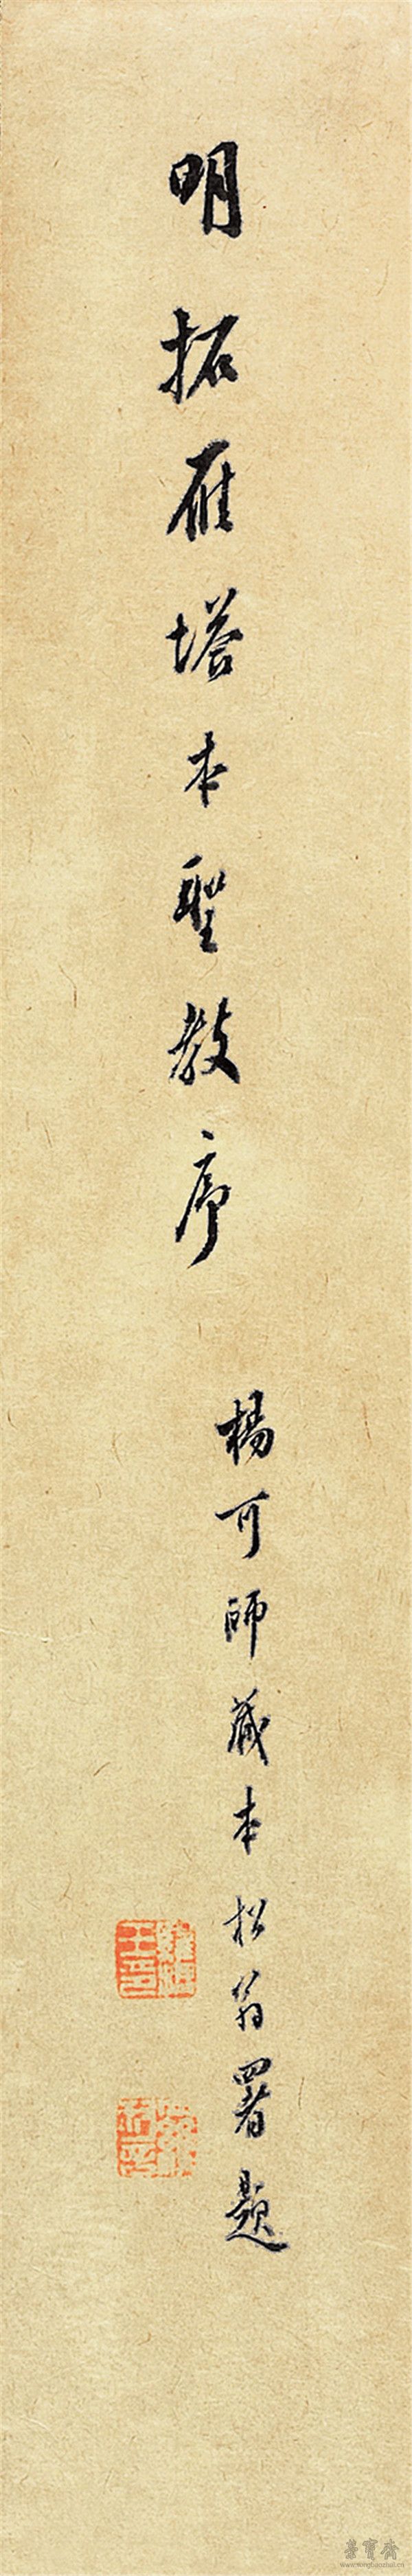 明拓雁塔本聖教序
楊可師藏本松翁署題
榮寳齋